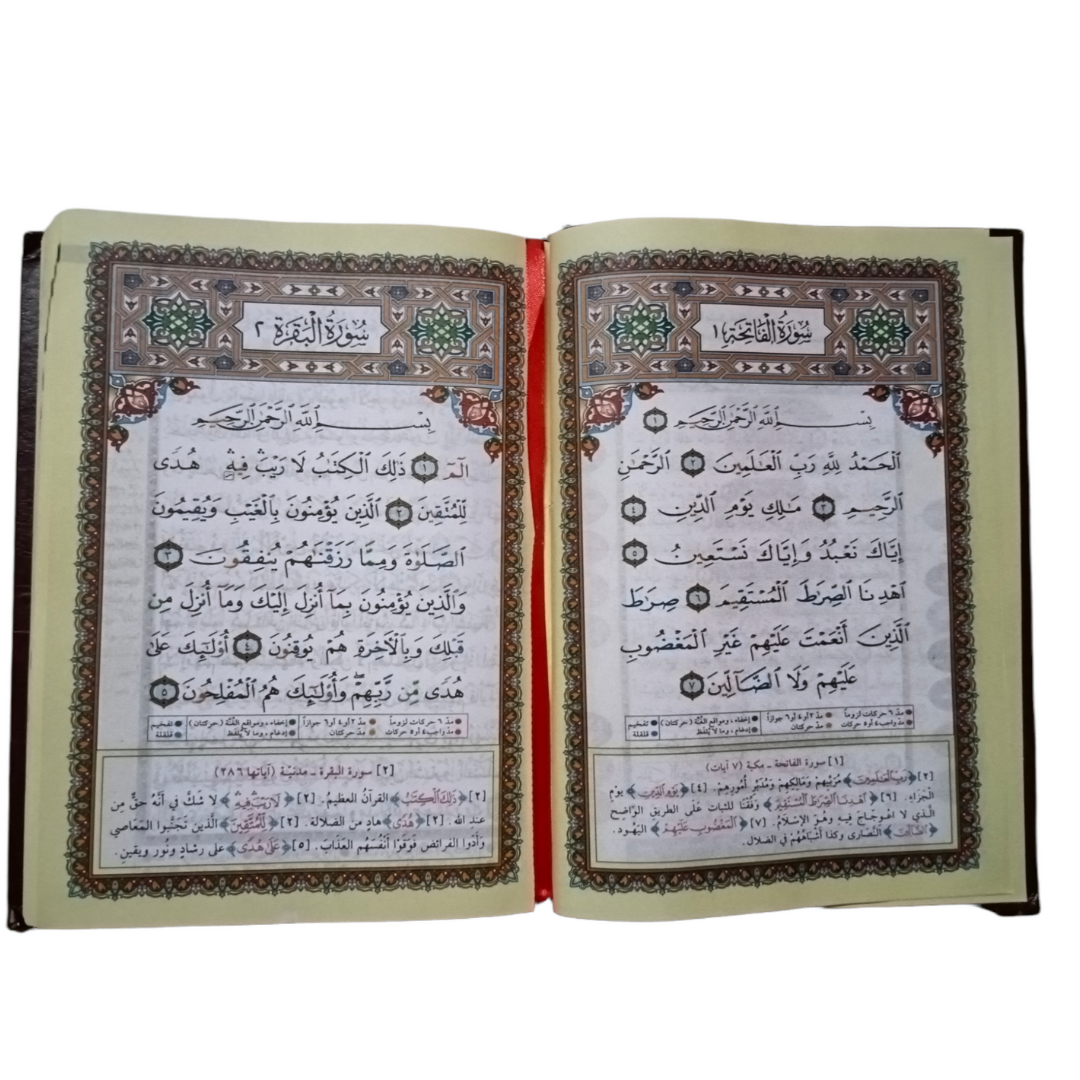 سُورَةُ الْفَاتِحَةِ ١
بِسْمِ ٱللَّهِ ٱلرَّحْمَٰنِ ٱلرَّحِيمِ ١
ٱلْحَمْدُ لِلَّهِ رَبِّ ٱلْعَٰلَمِينَ ٢ ٱلرَّحْمَٰنِ
ٱلرَّحِيمِ ٣ مَٰلِكِ يَوْمِ ٱلدِّينِ ٤
إِيَّاكَ نَعْبُدُ وَإِيَّاكَ نَسْتَعِينُ ٥
ٱهْدِنَا ٱلصِّرَٰطَ ٱلْمُسْتَقِيمَ ٦ صِرَٰطَ
ٱلَّذِينَ أَنْعَمْتَ عَلَيْهِمْ غَيْرِ ٱلْمَغْضُوبِ
عَلَيْهِمْ وَلَا ٱلضَّآلِّينَ ٧
مدّ ٦ حركات لزوماً مدّ ٢ أو ٤ أو ٦ جوازاً إخفاء، ومواقع الغُنَّة (حركتان) تفخيم
مدّ واجب ٤ أو ٥ حركات مدّ حركتان إدغام، وما لا يُلفَظ قلقلة
[١] سورة الفاتحة - مكية (٧ آيات)
[٢] ﴿رَبِّ ٱلْعَٰلَمِينَ﴾ مُرَبِّيهِمْ وَمَالِكِهِمْ وَمُدَبِّرِ أُمُورِهِمْ. [٤] ﴿يَوْمِ ٱلدِّينِ﴾ يومِ
الْجَزَاءِ. [٦] ﴿ٱهْدِنَا ٱلصِّرَٰطَ ٱلْمُسْتَقِيمَ﴾ وَفِّقْنَا للثبات عَلَى الطريق الوَاضِحِ
الَّذي لا اعْوِجَاجَ فِيهِ وهُوَ الإسْلَامُ. [٧] ﴿ٱلْمَغْضُوبِ عَلَيْهِمْ﴾ اليهود.
﴿ٱلضَّآلِّينَ﴾ النَّصَارَى وكذا أَشْبَاهُهُمْ في الضلال.
سُورَةُ الْبَقَرَةِ ٢
بِسْمِ ٱللَّهِ ٱلرَّحْمَٰنِ ٱلرَّحِيمِ
الٓمٓ ١ ذَٰلِكَ ٱلْكِتَٰبُ لَا رَيْبَ ۛ فِيهِ ۛ هُدًى
لِّلْمُتَّقِينَ ٢ ٱلَّذِينَ يُؤْمِنُونَ بِٱلْغَيْبِ وَيُقِيمُونَ
ٱلصَّلَوٰةَ وَمِمَّا رَزَقْنَٰهُمْ يُنفِقُونَ ٣
وَٱلَّذِينَ يُؤْمِنُونَ بِمَآ أُنزِلَ إِلَيْكَ وَمَآ أُنزِلَ مِن
قَبْلِكَ وَبِٱلْءَاخِرَةِ هُمْ يُوقِنُونَ ٤ أُو۟لَٰٓئِكَ عَلَىٰ
هُدًى مِّن رَّبِّهِمْ ۖ وَأُو۟لَٰٓئِكَ هُمُ ٱلْمُفْلِحُونَ ٥
مدّ ٦ حركات لزوماً مدّ ٢ أو ٤ أو ٦ جوازاً إخفاء، ومواقع الغُنَّة (حركتان) تفخيم
مدّ واجب ٤ أو ٥ حركات مدّ حركتان إدغام، وما لا يُلفَظ قلقلة
[٢] سورة البقرة - مدنيَّة (آياتها ٢٨٦)
[٢] ﴿ذَٰلِكَ ٱلْكِتَٰبُ﴾ القرآنُ العظيمُ. [٢] ﴿لَا رَيْبَ فِيهِ﴾ لا شَكَّ في أنَّهُ حقٌّ مِن
عند الله. [٢] ﴿هُدًى﴾ هادٍ من الضلالة. [٢] ﴿لِّلْمُتَّقِينَ﴾ الَّذين تَجَنَّبُوا المَعَاصي
وَأَدَوا الفرائض فَوَقَوْا أَنْفُسَهُم العَذَابَ. [٥] ﴿عَلَىٰ هُدًى﴾ على رشادٍ ونُور ويقينٍ.